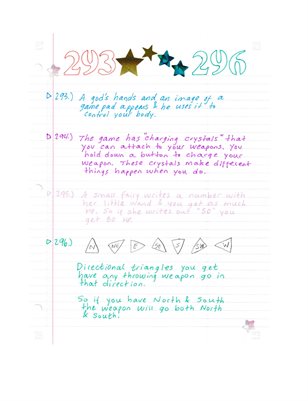 293 296
293.) A god's hands and an image of a
game pad appears & he uses it to
control your body.
294.) The game has "charging crystals" that
you can attach to your weapons. You
hold down a button to charge your
weapon. These crystals make different
things happen when you do.
295.) A small fairy writes a number with
her little wand & you get as much
HP. So if she writes out "50" you
get 50 HP.
296.) N NE E SE S SW W
Directional triangles you get
have any throwing weapon go in
that direction.
So if you have North & South
the weapon will go both North
& South!